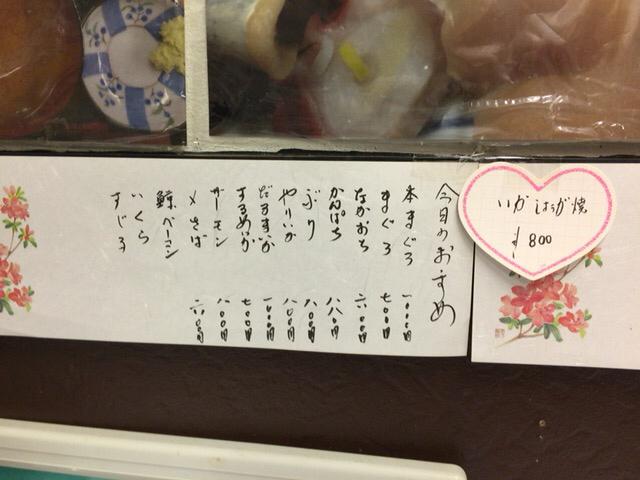 いかしょうが焼
¥800
今日のおすゝめ
本まぐろ 一〇〇〇円
まぐろ 七〇〇円
なかおち 六〇〇円
かんぱち 八八〇円
ぶり 八〇〇円
やりいか 八〇〇円
だるまいか 一〇〇〇円
するめいか 七〇〇円
サーモン 八〇〇円
〆さば 六〇〇円
鯨ベーコン
いくら
すじこ